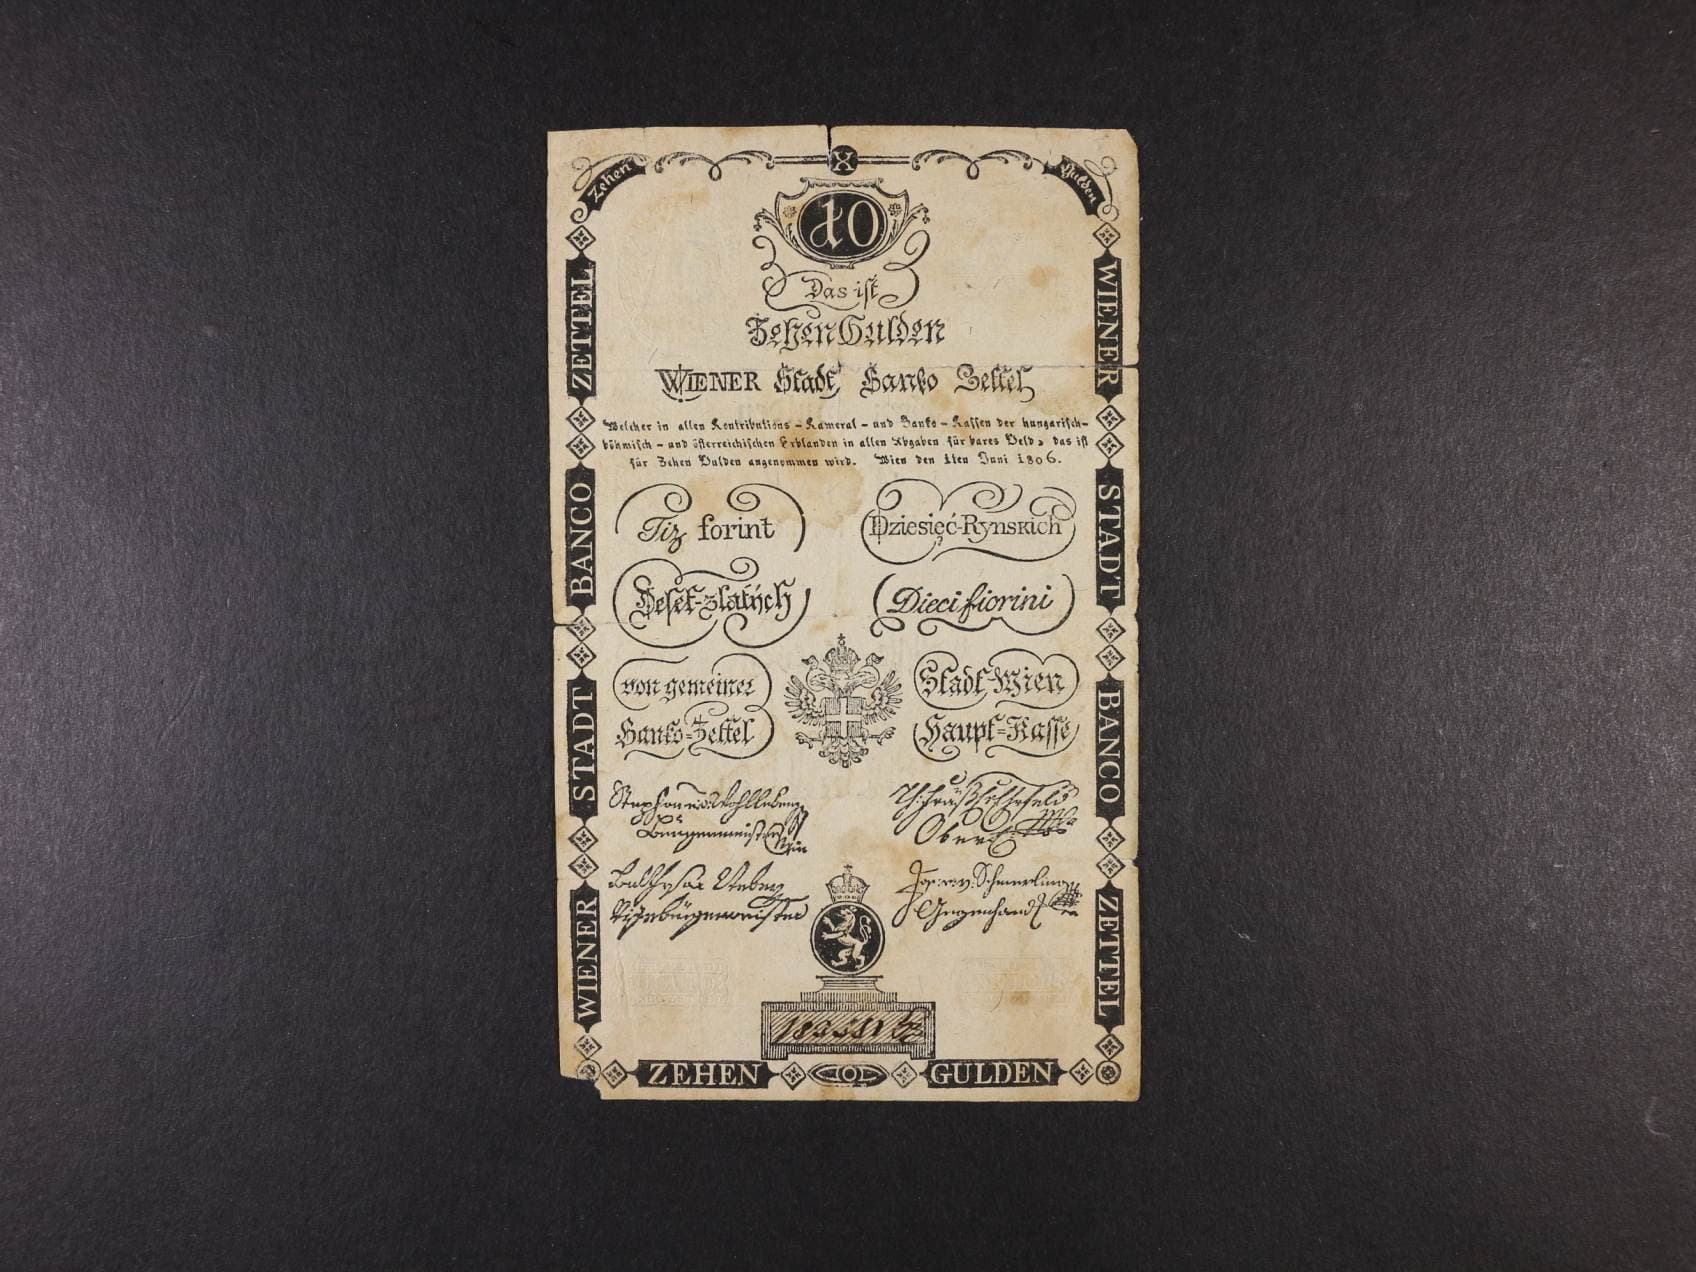 Zehen X Gulden
10
Das ist
Zehen Gulden
WIENER Stadt Banko Zettel
Welcher in allen Kontributions - Kameral - und Banko - Kassen der hungarisch-
böhmisch - und österreichischen Erblanden in allen Abgaben für bares Geld, das ist
für Zehen Gulden angenommen wird. Wien den 1ten Juni 1806.
Tiz forint Dziesięć-Rynskich
Deset-zlatých Dieci fiorini
von gemeiner Stadt Wien
Banko-Zettel Haupt=Kasse
Stephan
Burgermeister Ober
Weber Schmerling
Vizeburgermeister Gegenhand
ZEHEN GULDEN
WIENER STADT BANCO ZETTEL
WIENER STADT BANCO ZETTEL